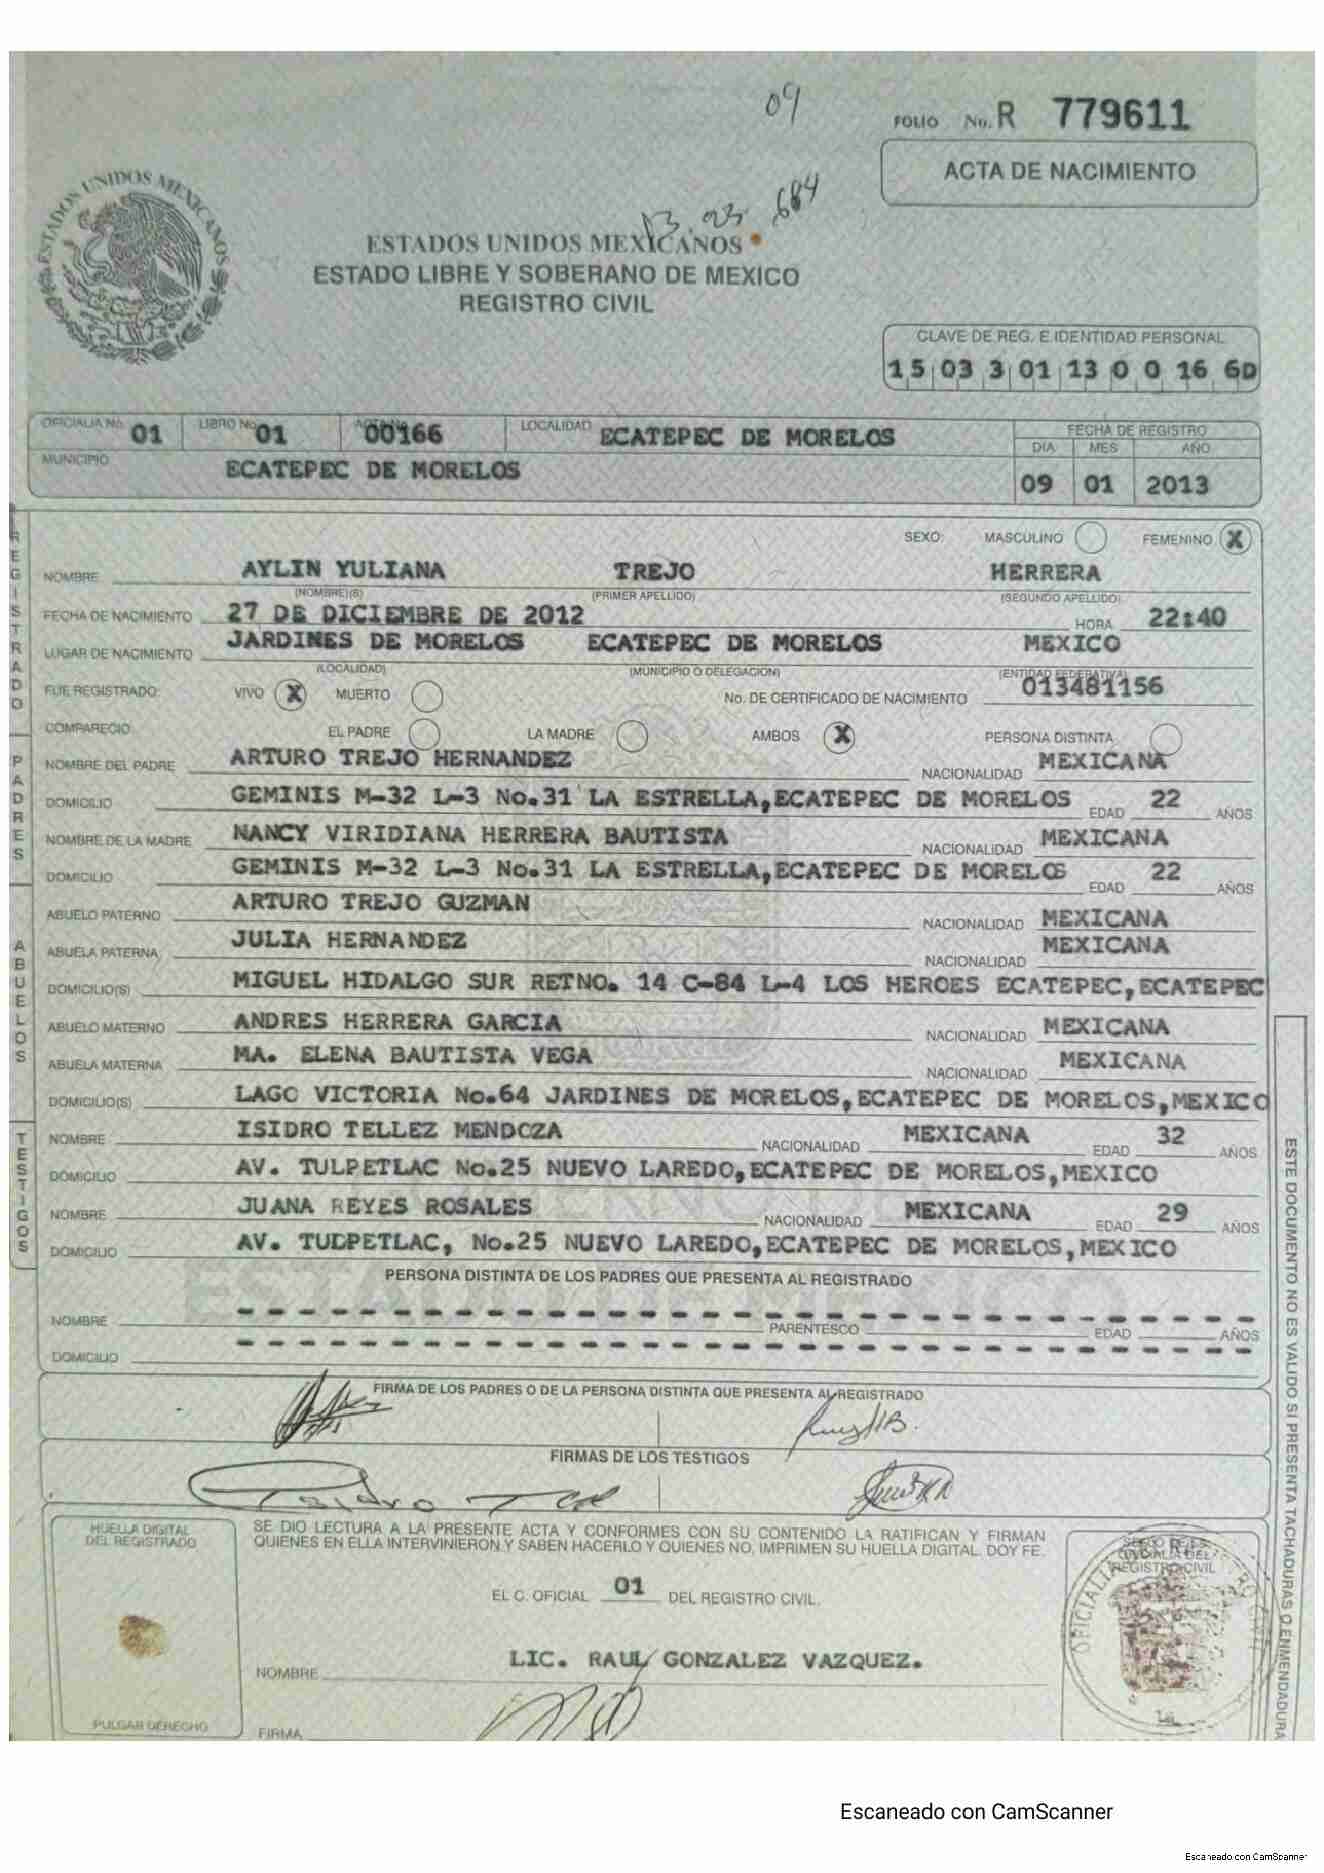 09
FOLIO No. R 779611
ACTA DE NACIMIENTO
ESTADOS UNIDOS MEXICANOS
13. 03 .684
ESTADOS UNIDOS MEXICANOS
ESTADO LIBRE Y SOBERANO DE MEXICO
REGISTRO CIVIL
CLAVE DE REG. E IDENTIDAD PERSONAL
15 03 3 01 13 0 0 16 6D
OFICIALIA No. 01 LIBRO No. 01 ACTA No. 00166 LOCALIDAD ECATEPEC DE MORELOS FECHA DE REGISTRO
DIA MES AÑO
MUNICIPIO ECATEPEC DE MORELOS 09 01 2013
REGISTRADO
SEXO: MASCULINO FEMENINO X
NOMBRE AYLIN YULIANA TREJO HERRERA
(NOMBRE)(S) (PRIMER APELLIDO) (SEGUNDO APELLIDO)
FECHA DE NACIMIENTO 27 DE DICIEMBRE DE 2012 HORA 22:40
LUGAR DE NACIMIENTO JARDINES DE MORELOS ECATEPEC DE MORELOS MEXICO
(LOCALIDAD) (MUNICIPIO O DELEGACION) (ENTIDAD FEDERATIVA)
FUE REGISTRADO: VIVO X MUERTO No. DE CERTIFICADO DE NACIMIENTO 013481156
COMPARECIO: EL PADRE LA MADRE AMBOS X PERSONA DISTINTA
PADRES
NOMBRE DEL PADRE ARTURO TREJO HERNANDEZ NACIONALIDAD MEXICANA
DOMICILIO GEMINIS M-32 L-3 No.31 LA ESTRELLA,ECATEPEC DE MORELOS EDAD 22 AÑOS
NOMBRE DE LA MADRE NANCY VIRIDIANA HERRERA BAUTISTA NACIONALIDAD MEXICANA
DOMICILIO GEMINIS M-32 L-3 No.31 LA ESTRELLA,ECATEPEC DE MORELOS EDAD 22 AÑOS
ABUELOS
ABUELO PATERNO ARTURO TREJO GUZMAN NACIONALIDAD MEXICANA
ABUELA PATERNA JULIA HERNANDEZ NACIONALIDAD MEXICANA
DOMICILIO(S) MIGUEL HIDALGO SUR RETNO. 14 C-84 L-4 LOS HEROES ECATEPEC,ECATEPEC
ABUELO MATERNO ANDRES HERRERA GARCIA NACIONALIDAD MEXICANA
ABUELA MATERNA MA. ELENA BAUTISTA VEGA NACIONALIDAD MEXICANA
DOMICILIO(S) LAGO VICTORIA No.64 JARDINES DE MORELOS,ECATEPEC DE MORELOS,MEXICO
TESTIGOS
NOMBRE ISIDRO TELLEZ MENDOZA NACIONALIDAD MEXICANA EDAD 32 AÑOS
DOMICILIO AV. TULPETLAC No.25 NUEVO LAREDO,ECATEPEC DE MORELOS,MEXICO
NOMBRE JUANA REYES ROSALES NACIONALIDAD MEXICANA EDAD 29 AÑOS
DOMICILIO AV. TULPETLAC, No.25 NUEVO LAREDO,ECATEPEC DE MORELOS,MEXICO
ESTADO DE MEXICO
PERSONA DISTINTA DE LOS PADRES QUE PRESENTA AL REGISTRADO
NOMBRE PARENTESCO EDAD AÑOS
DOMICILIO
FIRMA DE LOS PADRES O DE LA PERSONA DISTINTA QUE PRESENTA AL REGISTRADO
FIRMAS DE LOS TESTIGOS
Isidro
HUELLA DIGITAL
DEL REGISTRADO
SE DIO LECTURA A LA PRESENTE ACTA Y CONFORMES CON SU CONTENIDO LA RATIFICAN Y FIRMAN
QUIENES EN ELLA INTERVINIERON Y SABEN HACERLO Y QUIENES NO, IMPRIMEN SU HUELLA DIGITAL. DOY FE.
EL C. OFICIAL 01 DEL REGISTRO CIVIL.
NOMBRE LIC. RAUL GONZALEZ VAZQUEZ.
PULGAR DERECHO
FIRMA
SELLO DE LA
OFICIALIA DEL
REGISTRO CIVIL
ESTE DOCUMENTO NO ES VALIDO SI PRESENTA TACHADURAS O ENMENDADURA
Escaneado con CamScanner
Escaneado con CamScanner